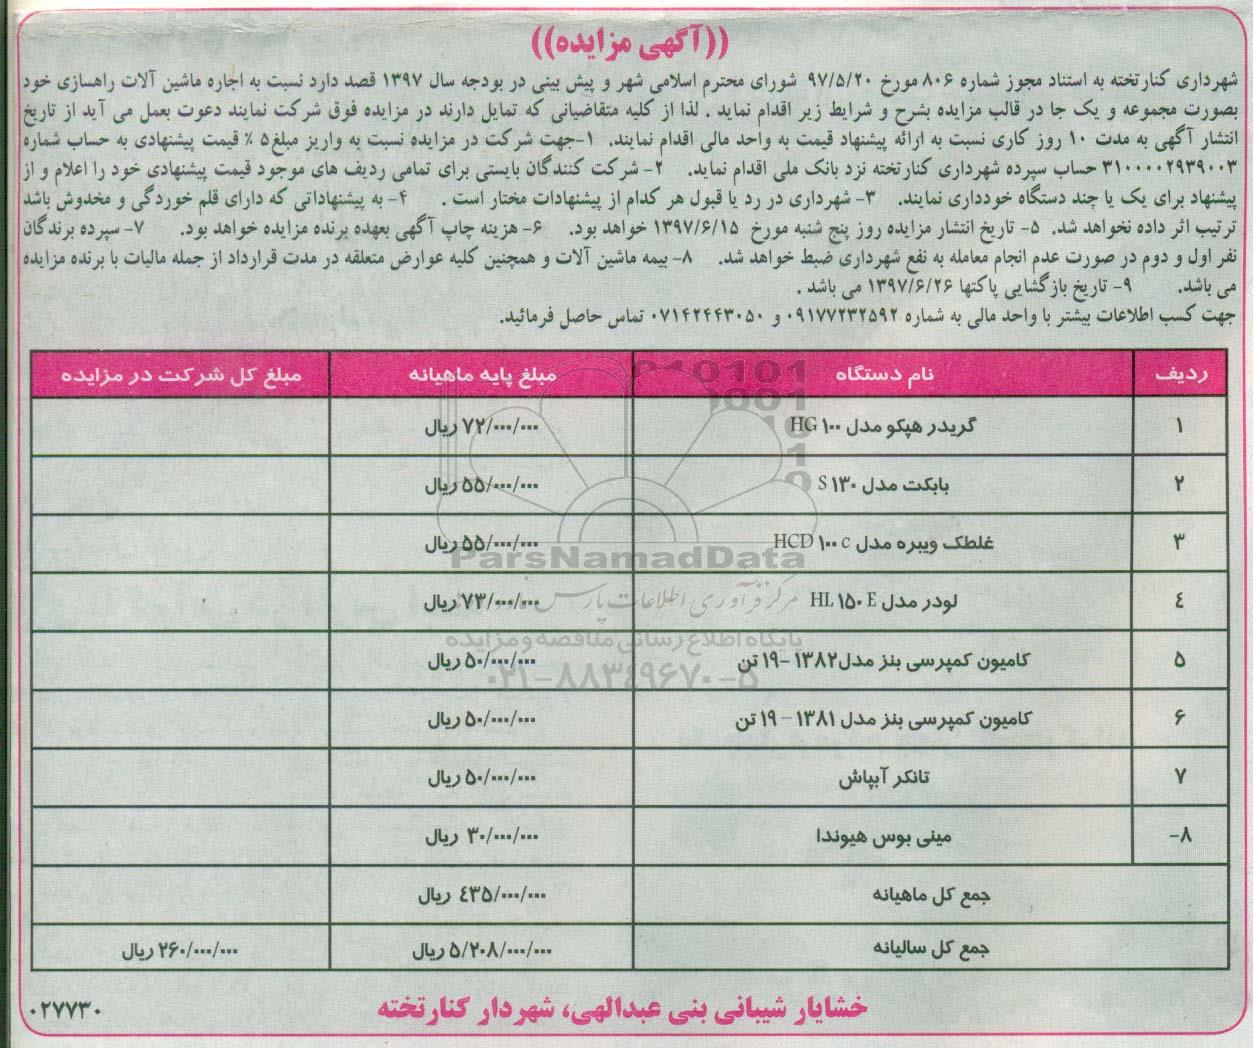 ((آگهی مزایده))
شهرداری کنارتخته به استناد مجوز شماره ۸۰۶ مورخ ۹۷/۵/۲۰ شورای محترم اسلامی شهر و پیش بینی در بودجه سال ۱۳۹۷ قصد دارد نسبت به اجاره ماشین آلات راهسازی خود
بصورت مجموعه و یک جا در قالب مزایده بشرح و شرایط زیر اقدام نماید . لذا از کلیه متقاضیانی که تمایل دارند در مزایده فوق شرکت نمایند دعوت بعمل می آید از تاریخ
انتشار آگهی به مدت ۱۰ روز کاری نسبت به ارائه پیشنهاد قیمت به واحد مالی اقدام نمایند. ۱-جهت شرکت در مزایده نسبت به واریز مبلغ۵ ٪ قیمت پیشنهادی به حساب شماره
۳۱۰۰۰۰۲۹۳۹۰۰۳ حساب سپرده شهرداری کنارتخته نزد بانک ملی اقدام نماید. ۲- شرکت کنندگان بایستی برای تمامی ردیف های موجود قیمت پیشنهادی خود را اعلام و از
پیشنهاد برای یک یا چند دستگاه خودداری نمایند. ۳- شهرداری در رد یا قبول هر کدام از پیشنهادات مختار است . ۴- به پیشنهاداتی که دارای قلم خوردگی و مخدوش باشد
ترتیب اثر داده نخواهد شد. ۵- تاریخ انتشار مزایده روز پنج شنبه مورخ ۱۳۹۷/۶/۱۵ خواهد بود. ۶- هزینه چاپ آگهی بعهده برنده مزایده خواهد بود. ۷- سپرده برندگان
نفر اول و دوم در صورت عدم انجام معامله به نفع شهرداری ضبط خواهد شد. ۸- بیمه ماشین آلات و همچنین کلیه عوارض متعلقه در مدت قرارداد از جمله مالیات با برنده مزایده
می باشد. ۹- تاریخ بازگشایی پاکتها ۱۳۹۷/۶/۲۶ می باشد .
جهت کسب اطلاعات بیشتر با واحد مالی به شماره ۰۹۱۷۷۲۳۲۵۹۲ و ۰۷۱۴۲۴۴۳۰۵۰ تماس حاصل فرمائید.
ردیف نام دستگاه مبلغ پایه ماهیانه مبلغ کل شرکت در مزایده
۱ گریدر هپکو مدل HG ۱۰۰ ۷۲/۰۰۰/۰۰۰ ریال
۲ بابکت مدل S ۱۳۰ ۵۵/۰۰۰/۰۰۰ ریال
۳ غلطک ویبره مدل HCD ۱۰۰ c ۵۵/۰۰۰/۰۰۰ ریال
۴ لودر مدل HL ۱۵۰ E ۷۳/۰۰۰/۰۰۰ ریال
۵ کامیون کمپرسی بنز مدل۱۳۸۲ -۱۹ تن ۵۰/۰۰۰/۰۰۰ ریال
۶ کامیون کمپرسی بنز مدل ۱۳۸۱ - ۱۹ تن ۵۰/۰۰۰/۰۰۰ ریال
۷ تانکر آبپاش ۵۰/۰۰۰/۰۰۰ ریال
۸- مینی بوس هیوندا ۳۰/۰۰۰/۰۰۰ ریال
جمع کل ماهیانه ۴۳۵/۰۰۰/۰۰۰ ریال
جمع کل سالیانه ۵/۲۰۸/۰۰۰/۰۰۰ ریال ۲۶۰/۰۰۰/۰۰۰ ریال
ParsNamadData
مرکز فرآوری اطلاعات پارس
پایگاه اطلاع رسانی مناقصه و مزایده
۰۲۱-۸۸۳۴۹۶۷۰-۵
خشایار شیبانی بنی عبدالهی، شهردار کنارتخته
۰۲۷۷۳۰